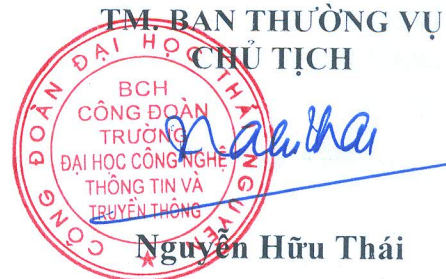 TM. BAN THƯỜNG VỤ
CHỦ TỊCH
CÔNG ĐOÀN ĐẠI HỌC THÁI NGUYÊN
BCH
CÔNG ĐOÀN
TRƯỜNG
ĐẠI HỌC CÔNG NGHỆ
THÔNG TIN VÀ
TRUYỀN THÔNG
Nguyễn Hữu Thái